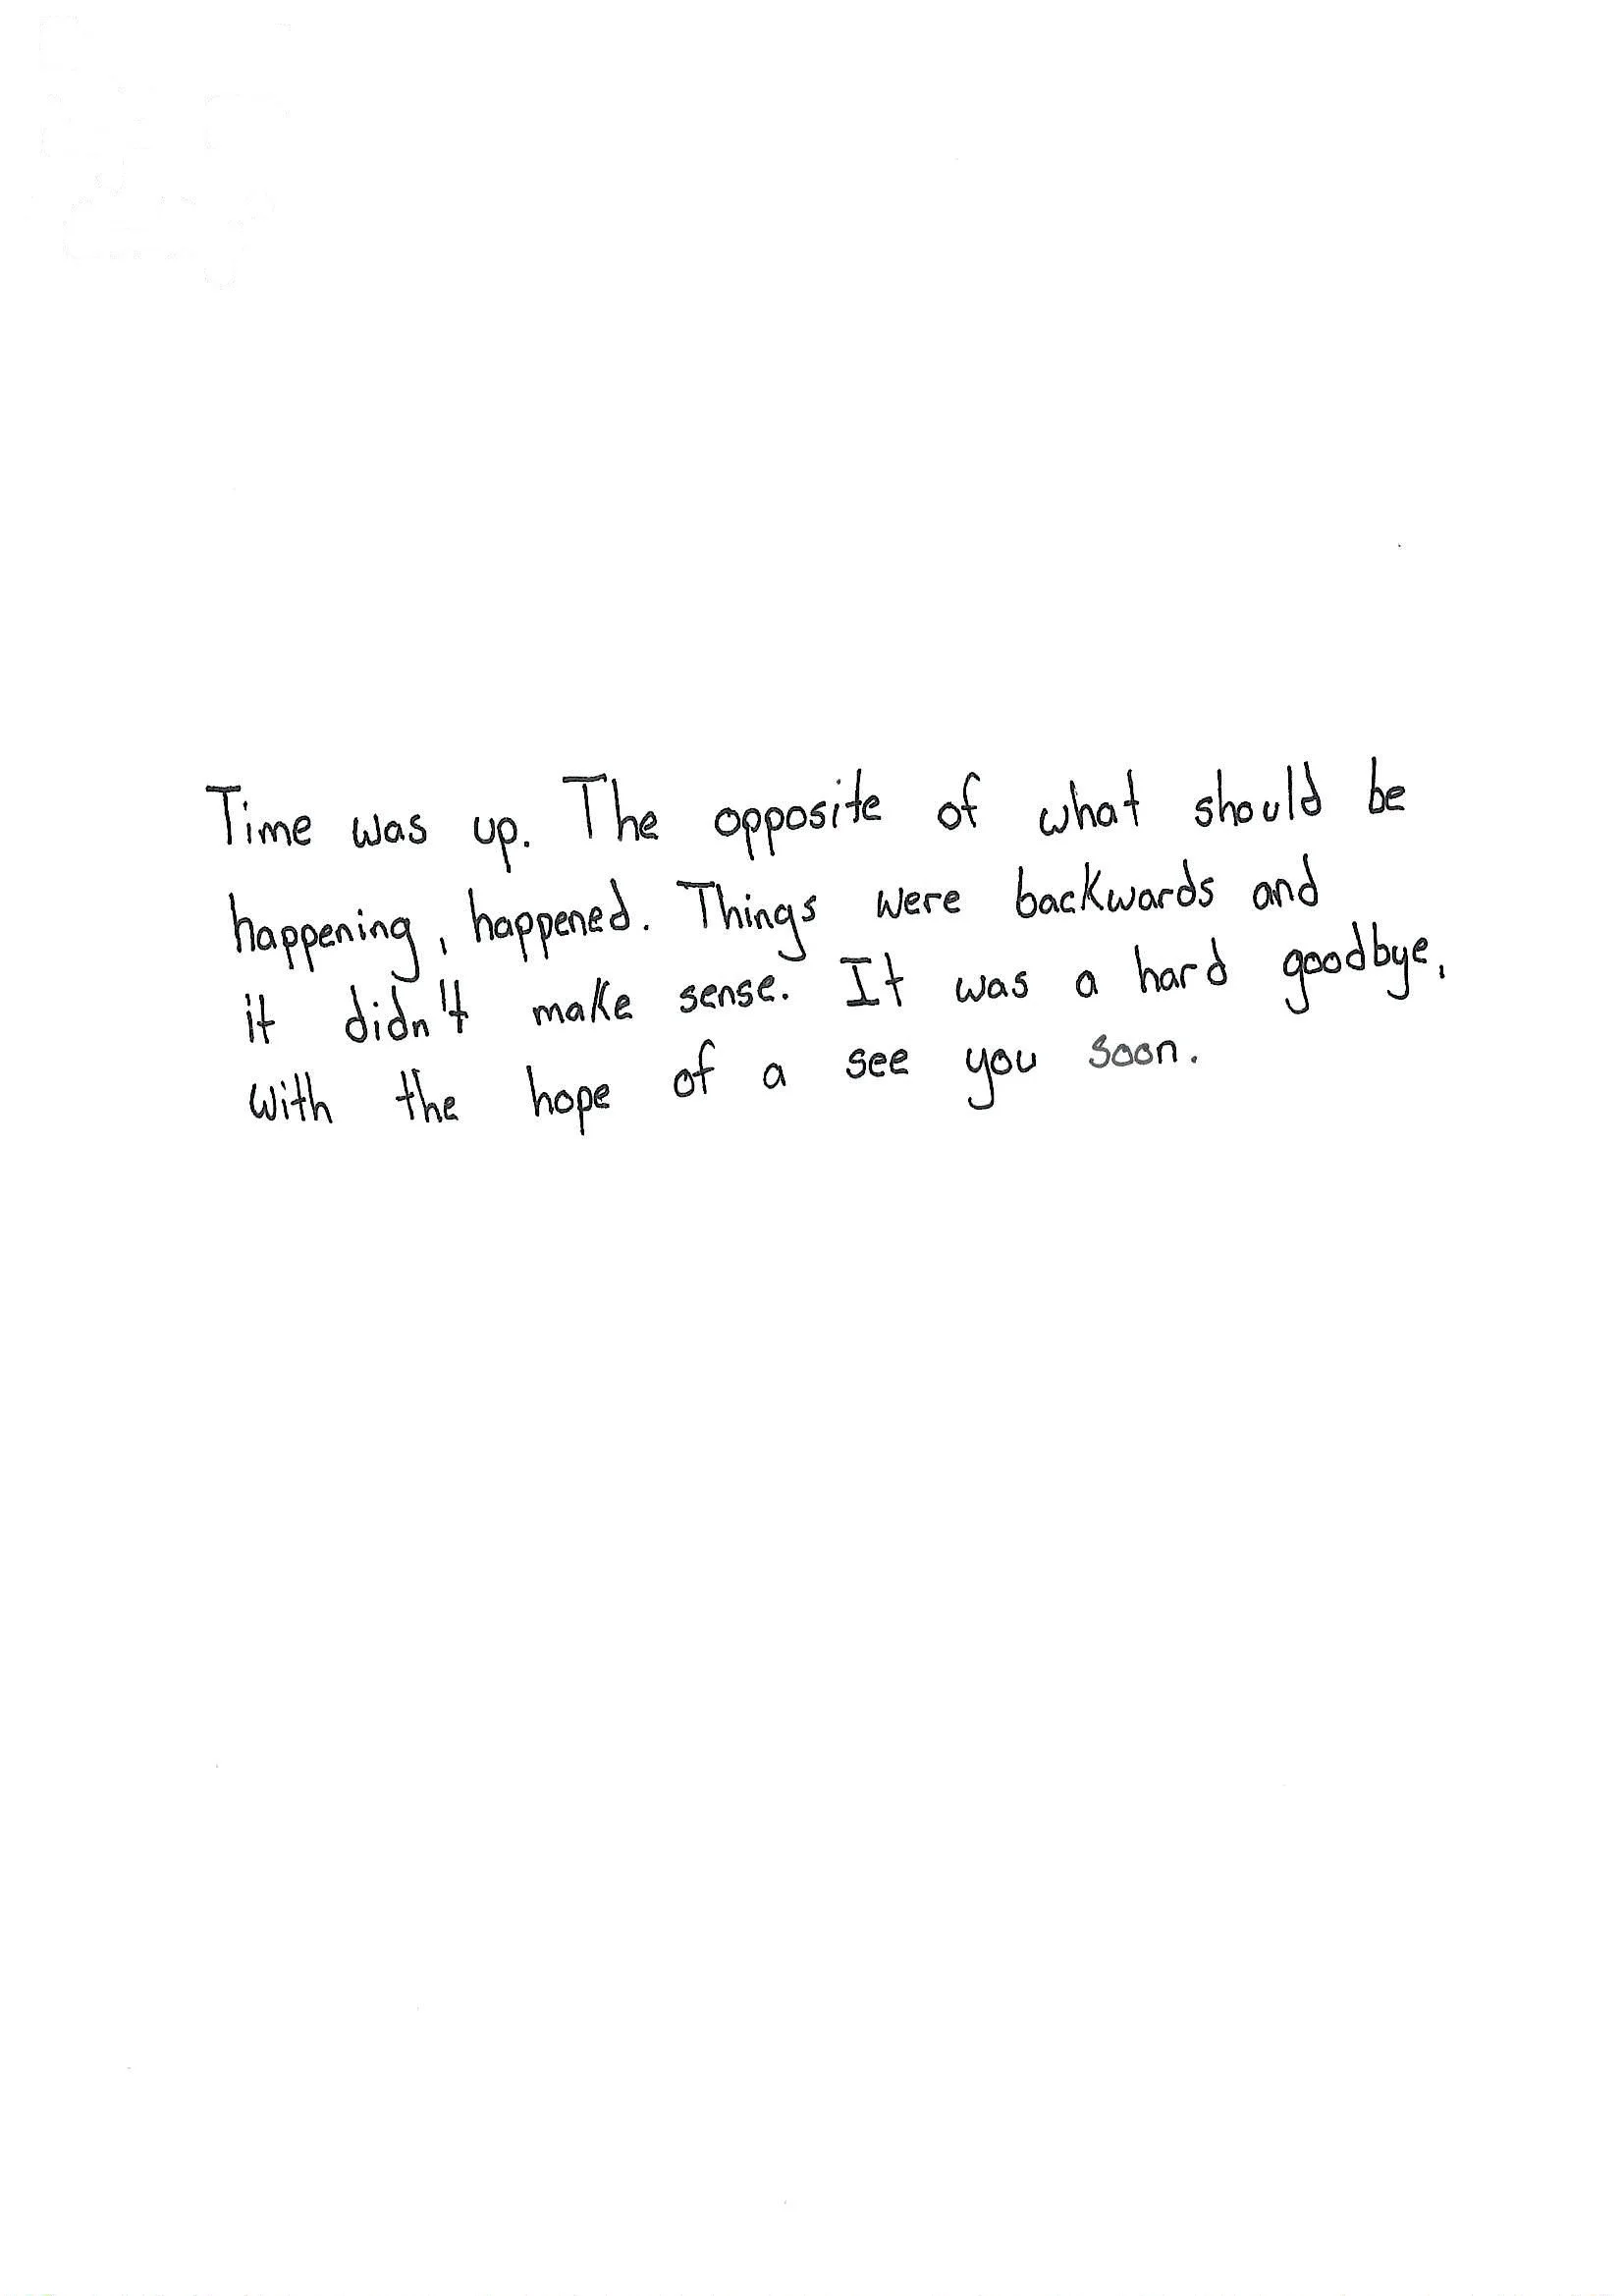 Time was up. The opposite of what should be
happening, happened. Things were backwards and
it didn't make sense. It was a hard goodbye,
with the hope of a see you soon.